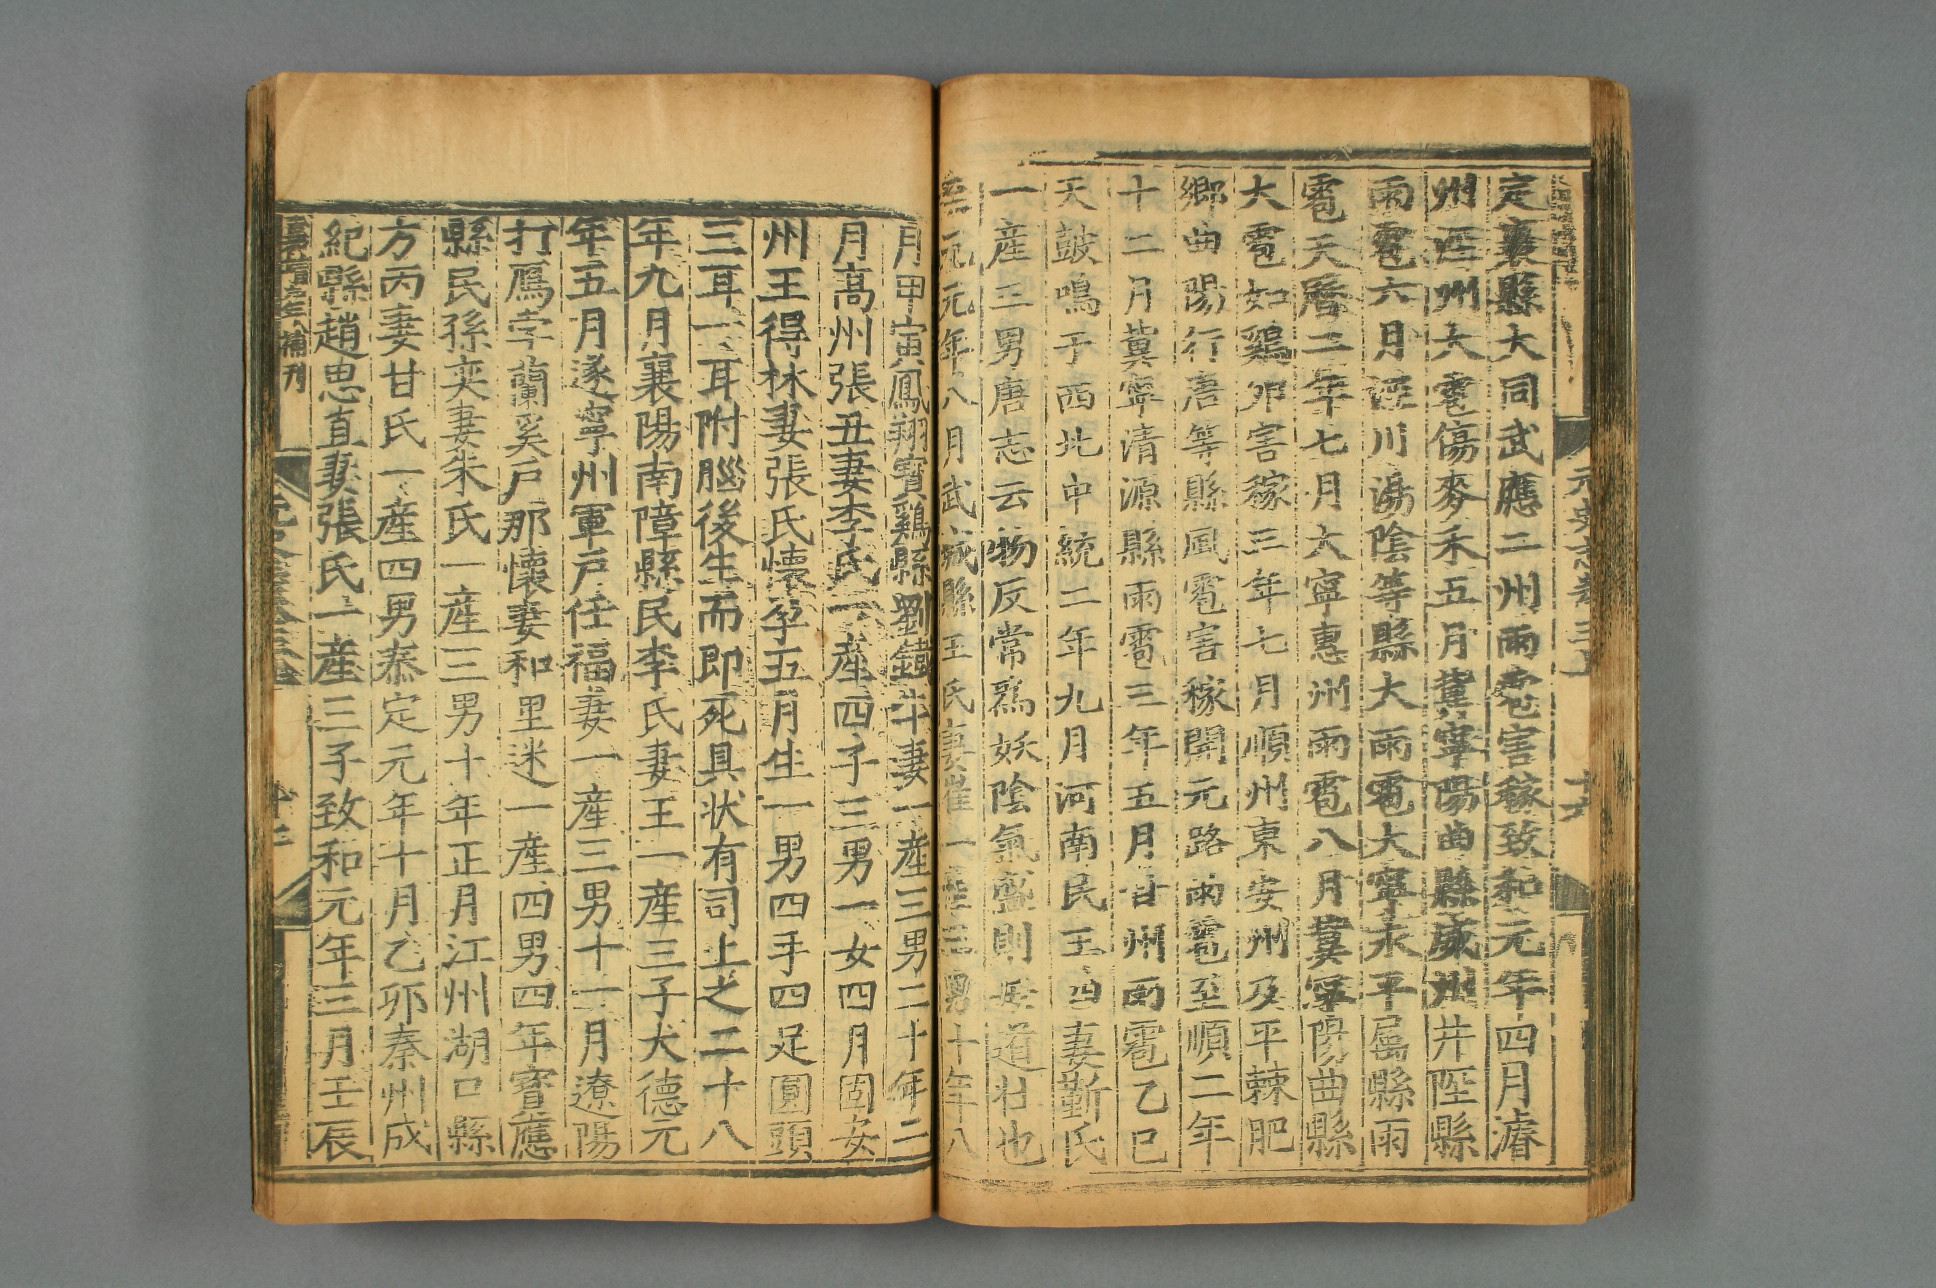 元史志卷三上
十六
定襄縣大同武應二州雨雹害稼致和元年四月濬
州涇州大雹傷麥禾五月冀寧陽曲縣威州井陘縣
雨雹六月涇川湯陰等縣大雨雹大寧永平屬縣雨
雹天曆二年七月大寧惠州雨雹八月冀寧陽曲縣
大雹如鷄卵害稼三年七月順州東安州及平棘肥
鄉曲陽行唐等縣風雹害稼開元路雨雹至順二年
十二月冀寧清源縣雨雹三年五月甘州雨雹乙巳
天鼓鳴于西北中統二年九月河南民王四妻靳氏
一產三男唐志云物反常爲妖陰氣盛則母道壯也
至元元年八月武城縣王氏妻崔一產三男十年八
月甲寅鳳翔寶鷄縣劉鐵牛妻一產三男二十年二
月高州張丑妻李氏一產四子三男一女四月固安
州王得林妻張氏懷孕五月生一男四手四足圓頭
三耳一耳附腦後生而即死具狀有司上之二十八
年九月襄陽南障縣民李氏妻王一產三子大德元
年五月遂寧州軍戶任福妻一產三男十一月遼陽
打鴈孛蘭奚戶那懷妻和里迷一產四男四年寶應
縣民孫奕妻朱氏一產三男十年正月江州湖口縣
方丙妻甘氏一產四男泰定元年十月乙卯秦州成
紀縣趙思直妻張氏一產三子致和元年三月壬辰
補刊